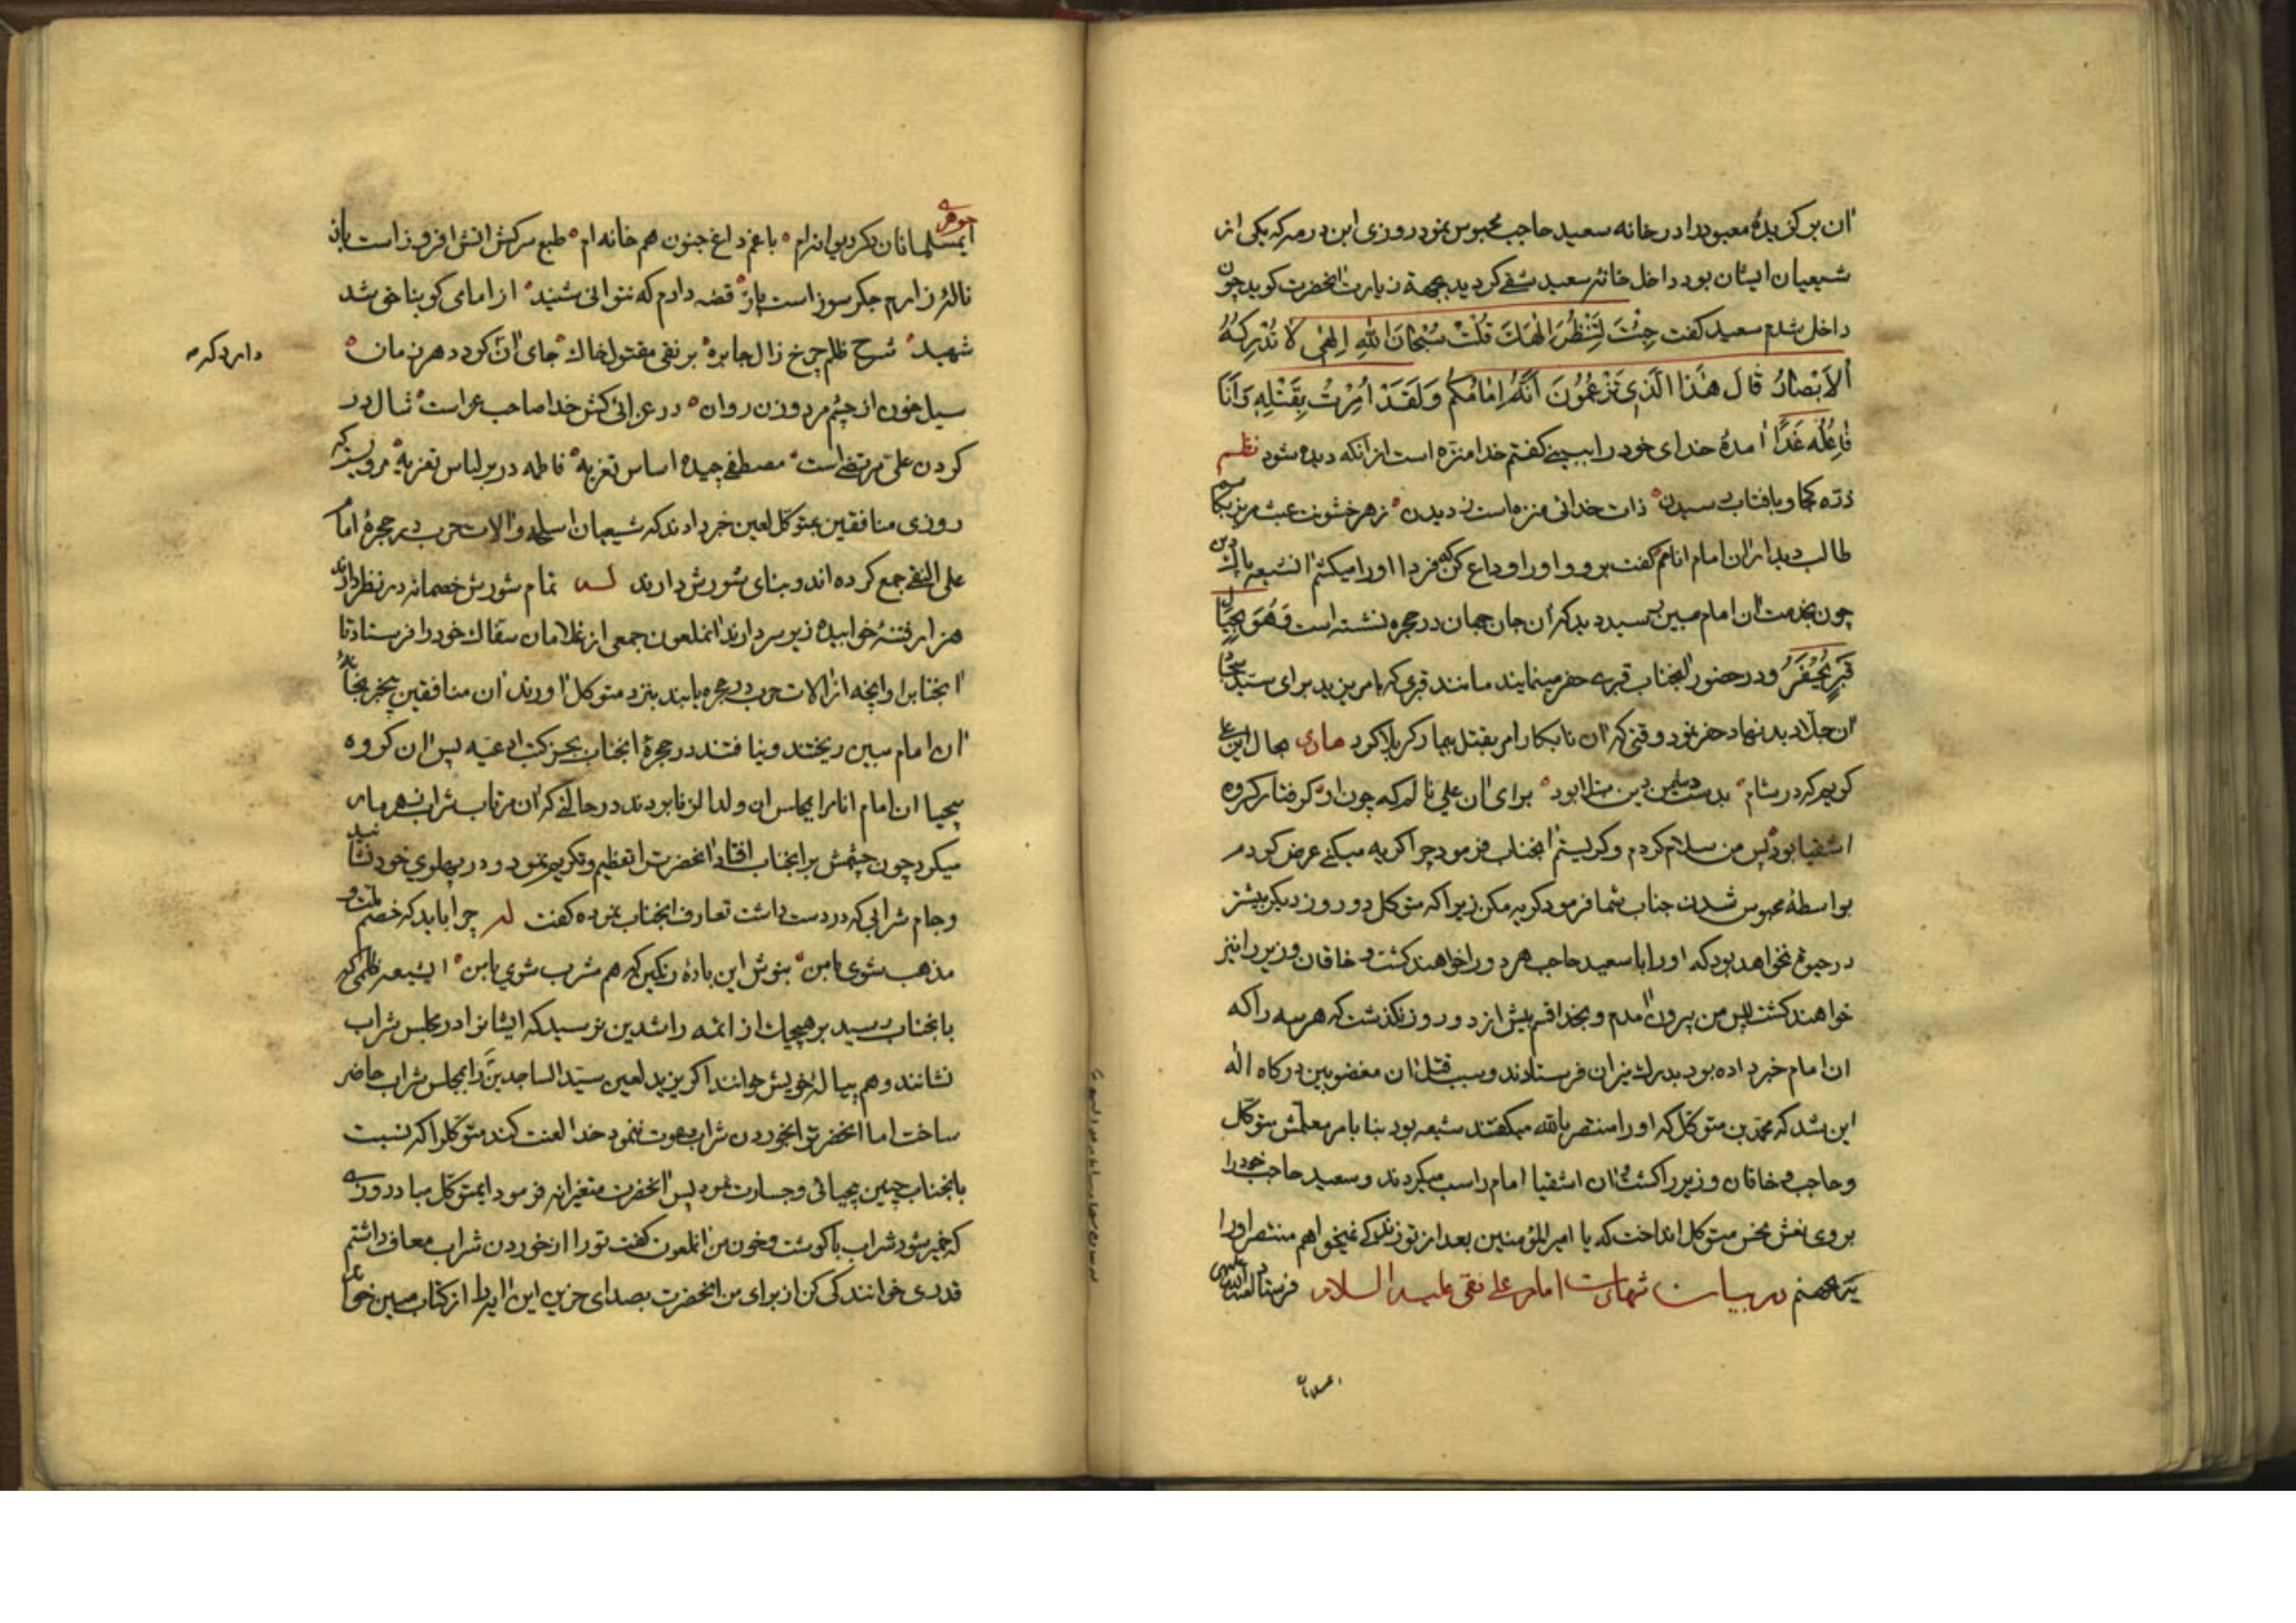 آن برگزیدهٔ معبود را در خانه سعید حاجب محبوس نمود روزی ابن درمه که یکی از
شیعیان ایشان بود داخل خانهٔ سعید شقی گردید بجهة زیارت آنحضرت گوید چون
داخل شدم سعید گفت جِئْتَ لِتَنْظُرَ اِلٰهَكَ قُلْتُ سُبْحَانَ اللهِ اِلٰهِی لا تُدْرِكُهُ
اَلاَبْصارُ قالَ هٰذا الَّذِی تَزْعُمُونَ اَنَّهُ اِمامُكُمْ وَلَقَدْ اُمِرْتُ بِقَتْلِهِ وَاَنَا
فاعِلُه غَدًا آمدهٔ خدای خود را ببینی گفتم خدا منزه است از آنکه دیده شود نظم
ذرّه کجا و بافتاب رسیدن ذات خدائی منزه است ز دیدن زهر خشونت عبث مریز بکامم
طالب دیدار آن امام انامم گفت برو و او را وداع کن که فردا او را میکشم الشیعه پاک دین
چون بخدمت آن امام مبین رسید دید که آن جان جهان در حجره نشسته است
قَبْرٍ یُحْفَرُ و در حضور آنجناب قبری حفر مینمایند مانند قبری که بامر یزید برای سید سجاد
آن جلاد بدنهاد حفر نمود وقتی که آن نابکار امر بقتل بیمار کربلا کرد بحال این علی
گویم که در شام بدست دشمن دین مبتلا بود برای آن علی نالم که چون او گرفتار گروه
اشقیا بود پس من سلام کردم و گریستم آنجناب فرمود چرا گریه میکنی عرض کردم
بواسطهٔ محبوس شدن جناب شما فرمود گریه مکن زیرا که متوکل دو روز دیگر بیشتر
در حیوة نخواهد بود که او را با سعید حاجب هر دو را خواهند کشت و خاقان وزیر را نیز
خواهند کشت پس من بیرون آمدم و بخدا قسم بیش از دو روز نگذشت که هر سه را که
آن امام خبر داده بود بدرك نیران فرستادند و سبب قتل آن مغضوبین درکاه اله
این شد که محمد بن متوکل که او را منتصر بالله میگفتند شیعه بود بنا بامر معلمش متوکل
و حاجب و خاقان وزیر را کشت آن اشقیا امام را سب میکردند و سعید حاجب خود را
بروی نعش نحس متوکل انداخت که یا امیرالمؤمنین بعد از تو زندگی نمیخواهم منتصر او را
بجهنم در بیان شهادت امام علی نقی علیه السلام فرستاد
جوهری
ایمسلمانان دگر دیوانه‌ام با غم و داغ جنون هم خانه‌ام طبع سرکش اتش افروز است باز
نالهٔ زارم جگرسوز است باز قصه دارم که نتوانی شنید از امامی کو بناحق شد
شهید شرح ظلم چرخ زال جابره بر نقی مقتول خاك جای آن کو در هر زمان
دارد که
سیل خون از چشم مرد و زن روان در عزائی کش خدا صاحب عزاست شال در
گردن علی مرتضی است مصطفی چیده اساس تعزیه فاطمه در بر لباس تعزیه مرویست که
روزی منافقین بمتوکل لعین خبر دادند که شیعیان اسلحه و الات حرب در حجرهٔ امام
علی النقی جمع کرده اند و بنای شورش دارند تمام شورش خصمانه در نظر دارند
هزار فتنهٔ خوابیده زیر سر دارند انملعون جمعی از غلامان سفاك خود را فرستاد تا
آنجنابرا و آنچه از الات حرب در حجره یابند بنزد متوکل آورند آن منافقین بیخبر بخانهٔ
آن امام مبین ریختند و نیافتند در حجرهٔ آنجناب بجز کتب ادعیه پس آن گروه
بیحیا آن امام انام را بمجلس آن ولد الزنا بردند در حالتی که آن مرتاب شراب زهرمار
میکرد چون چشمش بر آنجناب افتاد آنحضرت را تعظیم و تکریم نمود و در پهلوی خود نشانید
و جام شرابی که در دست داشت تعارف آنجناب نموده گفت چرا باید که خصم ملت و
مذهب شوی با من بنوش این بادهٔ رنگین که هم مشرب شوی با من الشیعه ظلمی که
بآنجناب رسید بر هیچیك از ائمه راشدین نرسید که ایشانرا در مجلس شراب
نشانند و هم پیالهٔ خویش خوانند اگر یزید لعین سید الساجدین را بمجلس شراب حاضر
ساخت اما آنحضرترا بخوردن شراب دعوت ننمود خدا لعنت کند متوکل را که نسبت
بآنجناب چنین بیحیائی و جسارت نمود پس آنحضرت متغیرانه فرمود ایمتوکل مبادا روزی
که خمیر شود شراب با گوشت و خون من انملعون گفت تو را از خوردن شراب معاف داشتم
قدری خوانندگی کن از برای من آنحضرت بصدای حزین این آیه را از کتاب مبین خواند